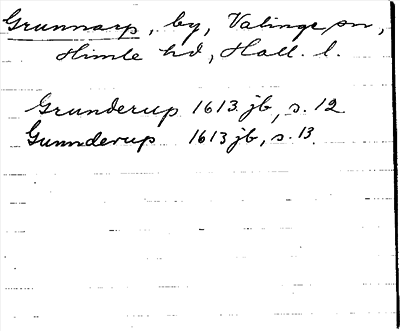 Grunnarp, by, Valinge sn,
Himle hd, Hall. l.
Grunderup 1613 jb, s. 12
Gunnderup 1613 jb, s. 13.